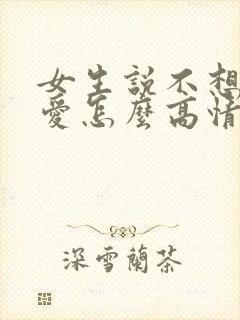 女生説不想
愛怎麽高情
深雪蘭茶